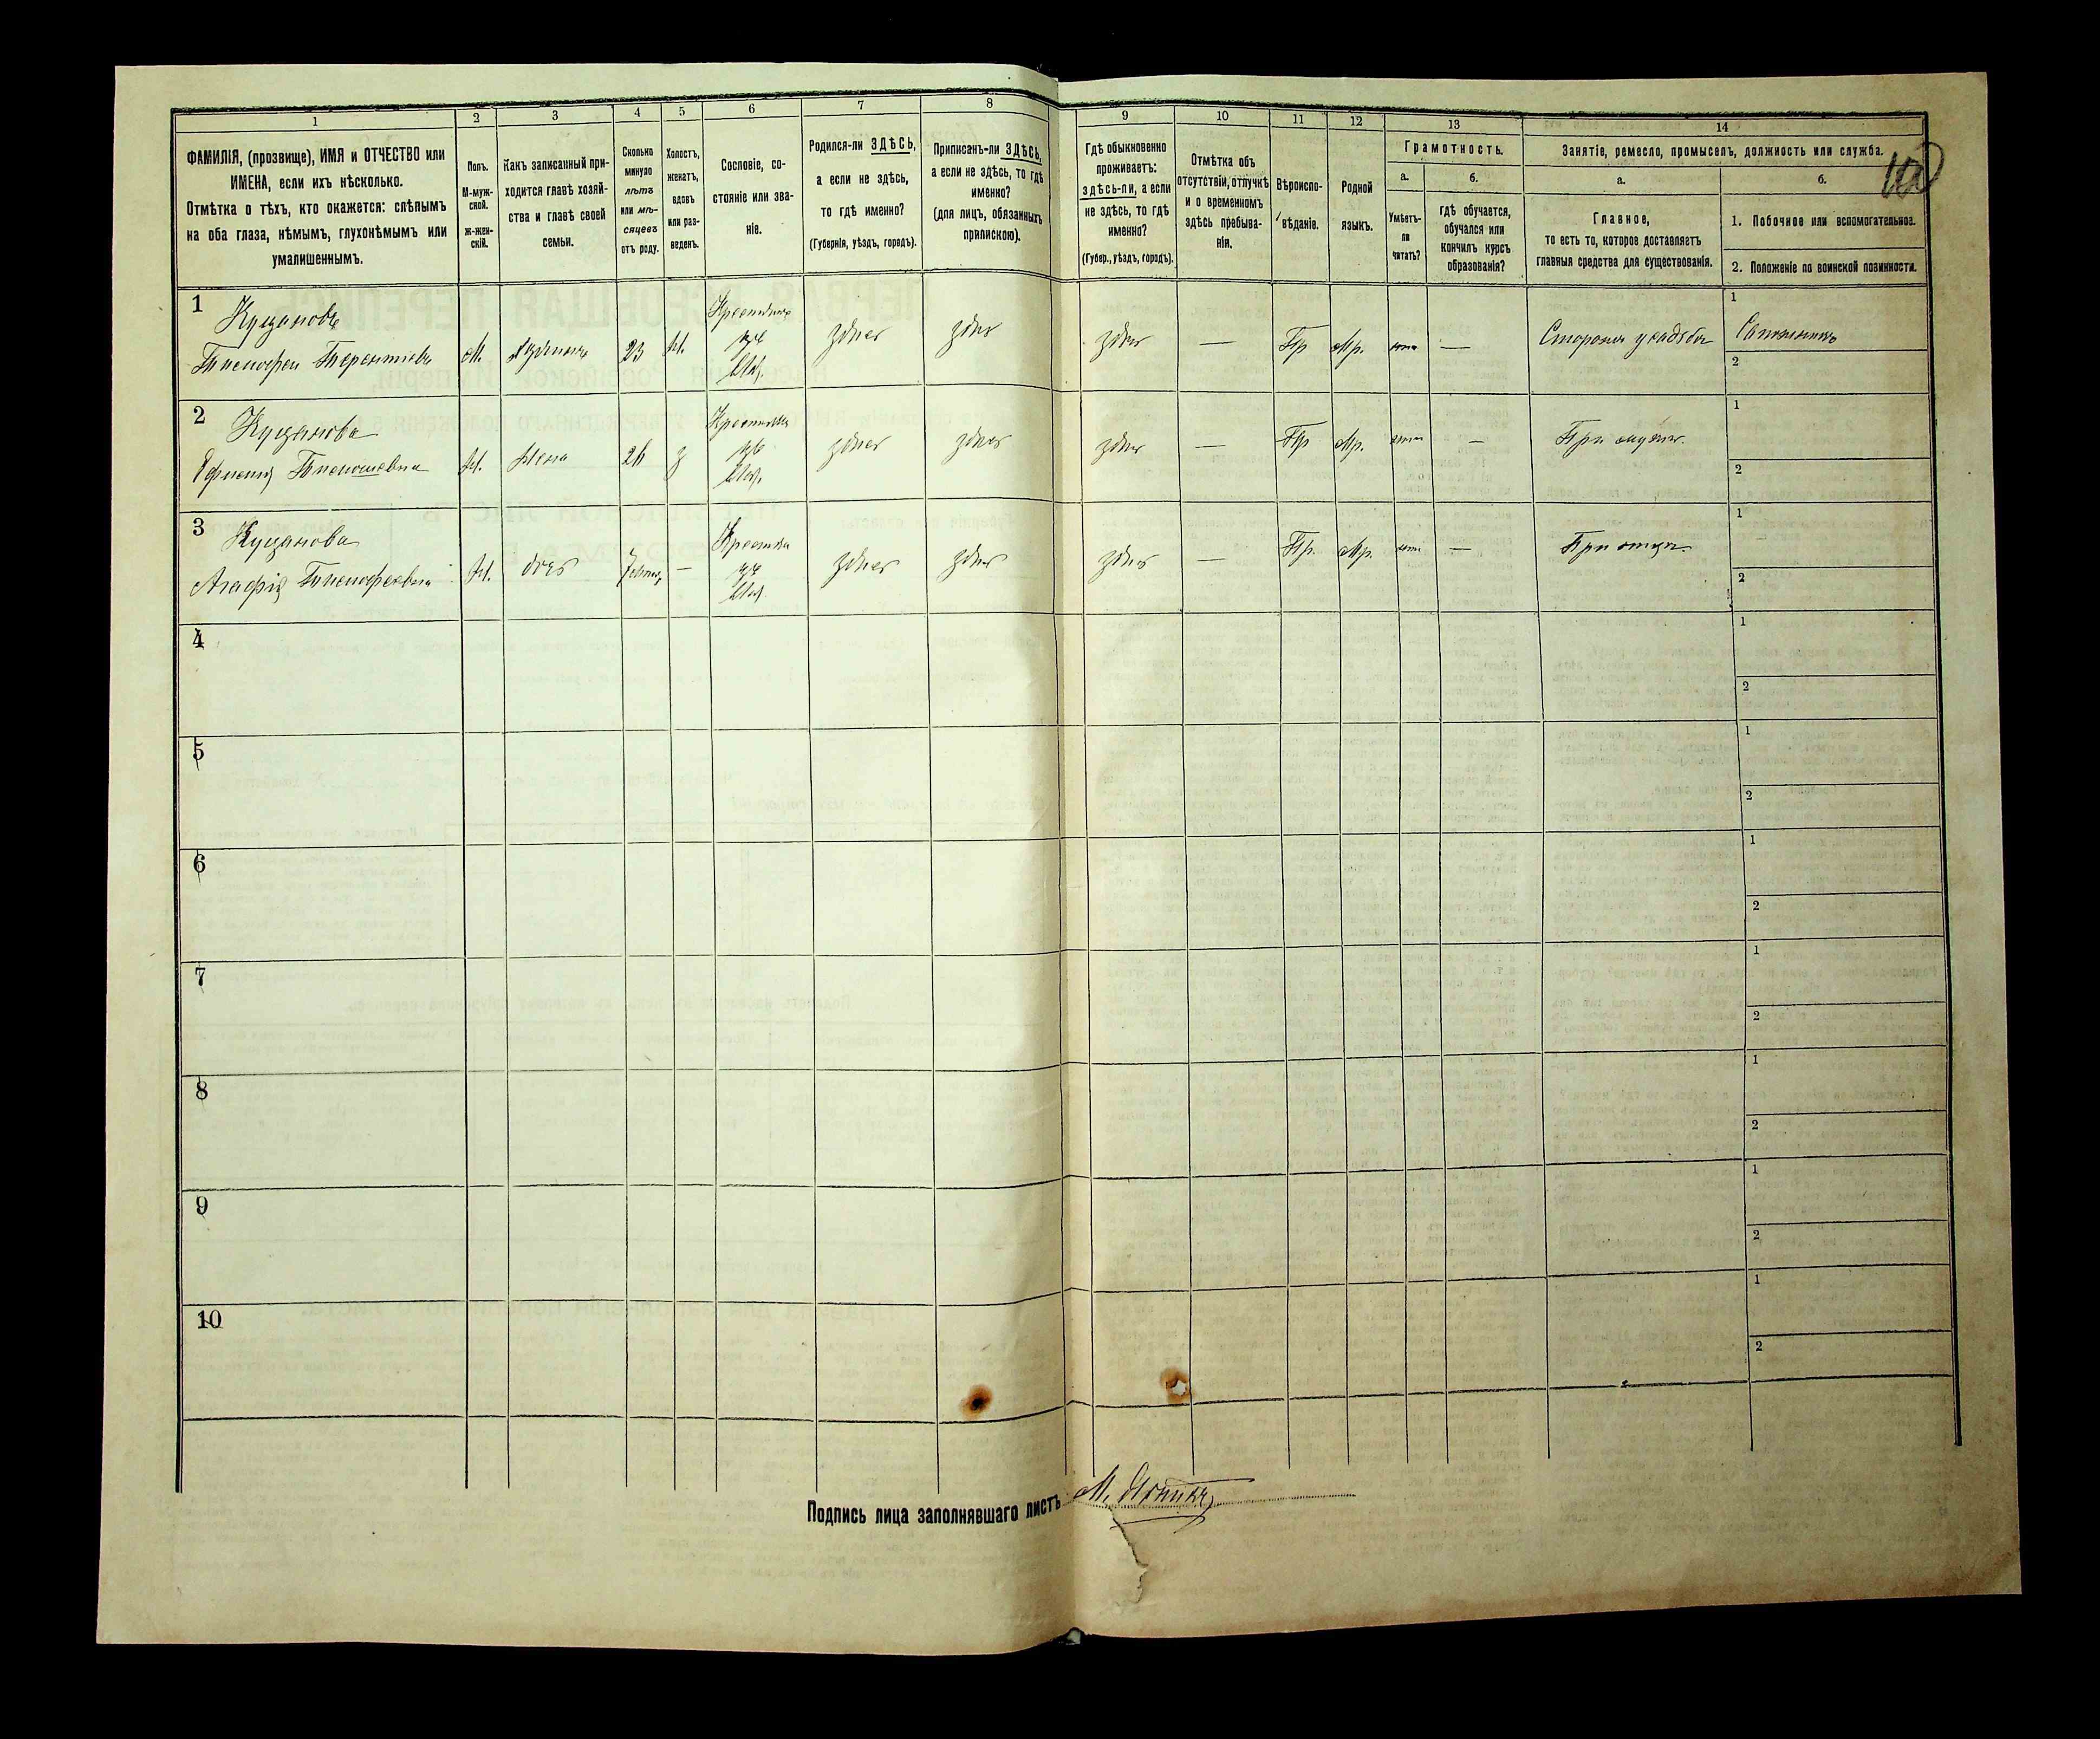 1
2
3
4
5
6
7
8
ФАМИЛІЯ, (прозвище), ИМЯ и ОТЧЕСТВО или
ИМЕНА, если ихъ нѣсколько.
Отмѣтка о тѣхъ, кто окажется: слѣпымъ
на оба глаза, нѣмымъ, глухонѣмымъ или
умалишеннымъ.
Полъ.
М-муж-
ской.
Ж-жен-
скій.
Какъ записанный при-
ходится главѣ хозяй-
ства и главѣ своей
семьи.
Сколько
минуло
лѣтъ
или мѣ-
сяцевъ
отъ роду.
Холостъ,
женатъ,
вдовъ
или раз-
веденъ.
Сословіе, со-
стояніе или зва-
ніе.
Родился-ли ЗДѢСЬ,
а если не здѣсь,
то гдѣ именно?
(Губернія, уѣздъ, городъ).
Приписанъ-ли ЗДѢСЬ,
а если не здѣсь, то гдѣ
именно?
(для лицъ, обязанныхъ
припискою).
9
10
11
12
13
14
Гдѣ обыкновенно
проживаетъ:
здѣсь-ли, а если
не здѣсь, то гдѣ
именно?
(Губер., уѣздъ, городъ).
Отмѣтка объ
отсутствіи, отлучкѣ
и о временномъ
здѣсь пребыва-
ніи.
Вѣроиспо-
вѣданіе.
Родной
языкъ.
Грамотность.
а.
б.
Умѣетъ-
ли
читать?
гдѣ обучается,
обучался или
кончилъ курсъ
образованія?
Занятіе, ремесло, промыселъ, должность или служба.
а.
б.
Главное,
то есть то, которое доставляетъ
главныя средства для существованія.
1. Побочное или вспомогательное.
2. Положеніе по воинской повинности.
1
Куцановъ
Терентіевъ
М.
23
Ж.
здѣсь
здѣсь
здѣсь
—
Пр
Мр.
—
1
2
2
Куцанова
Ж.
жена
здѣсь
здѣсь
здѣсь
—
Пр
Мр.
—
При мужѣ.
1
2
3
Куцанова
Агафія
Ж.
дочь
—
здѣсь
здѣсь
здѣсь
—
Пр.
Мр.
—
При отцѣ.
1
2
4
1
2
5
1
2
6
1
2
7
1
2
8
1
2
9
1
2
10
1
2
Подпись лица заполнявшаго листъ